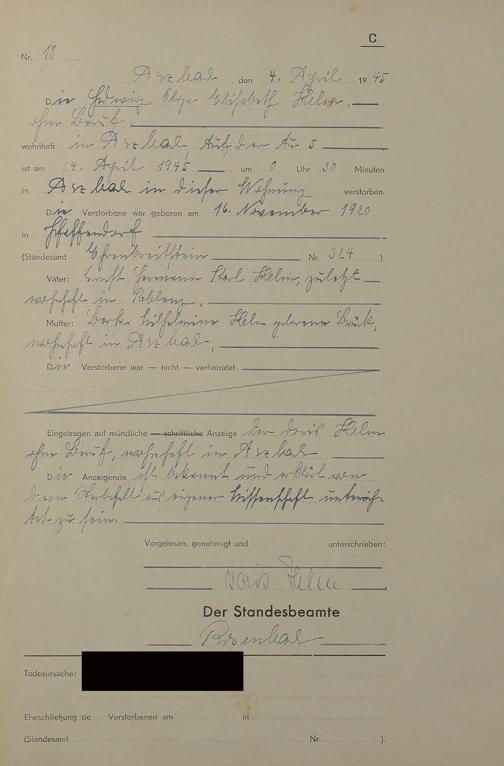 C
Nr. 18
Arzbach den 4. April 1945
Die Hedwig Olga Elisabeth Helm,
ohne Beruf
wohnhaft in Arzbach, Auf der Au 5
ist am 4. April 1945 um 0 Uhr 30 Minuten
in Arzbach in dieser Wohnung verstorben.
Die Verstorbene war geboren am 16. November 1920
in Pfaffendorf
(Standesamt Ehrenbreitstein Nr. 324 ).
Vater: Ernst Hermann Karl Helm, zuletzt
wohnhaft in Koblenz.
Mutter: Wilhelmine Helm geborene Brück,
wohnhaft in Arzbach.
Die Verstorbene war — nicht — verheiratet
Eingetragen auf mündliche — schriftliche Anzeige der Doris Helm
ohne Beruf, wohnhaft in Arzbach
Die Anzeigende ist bekannt und erklärt von
dem Sterbefall aus eigener Wissenschaft unterrich-
tet zu sein.
Vorgelesen, genehmigt und unterschrieben:
Doris Helm
Der Standesbeamte
Todesursache:
Eheschließung de Verstorbenen am in
(Standesamt Nr. ).